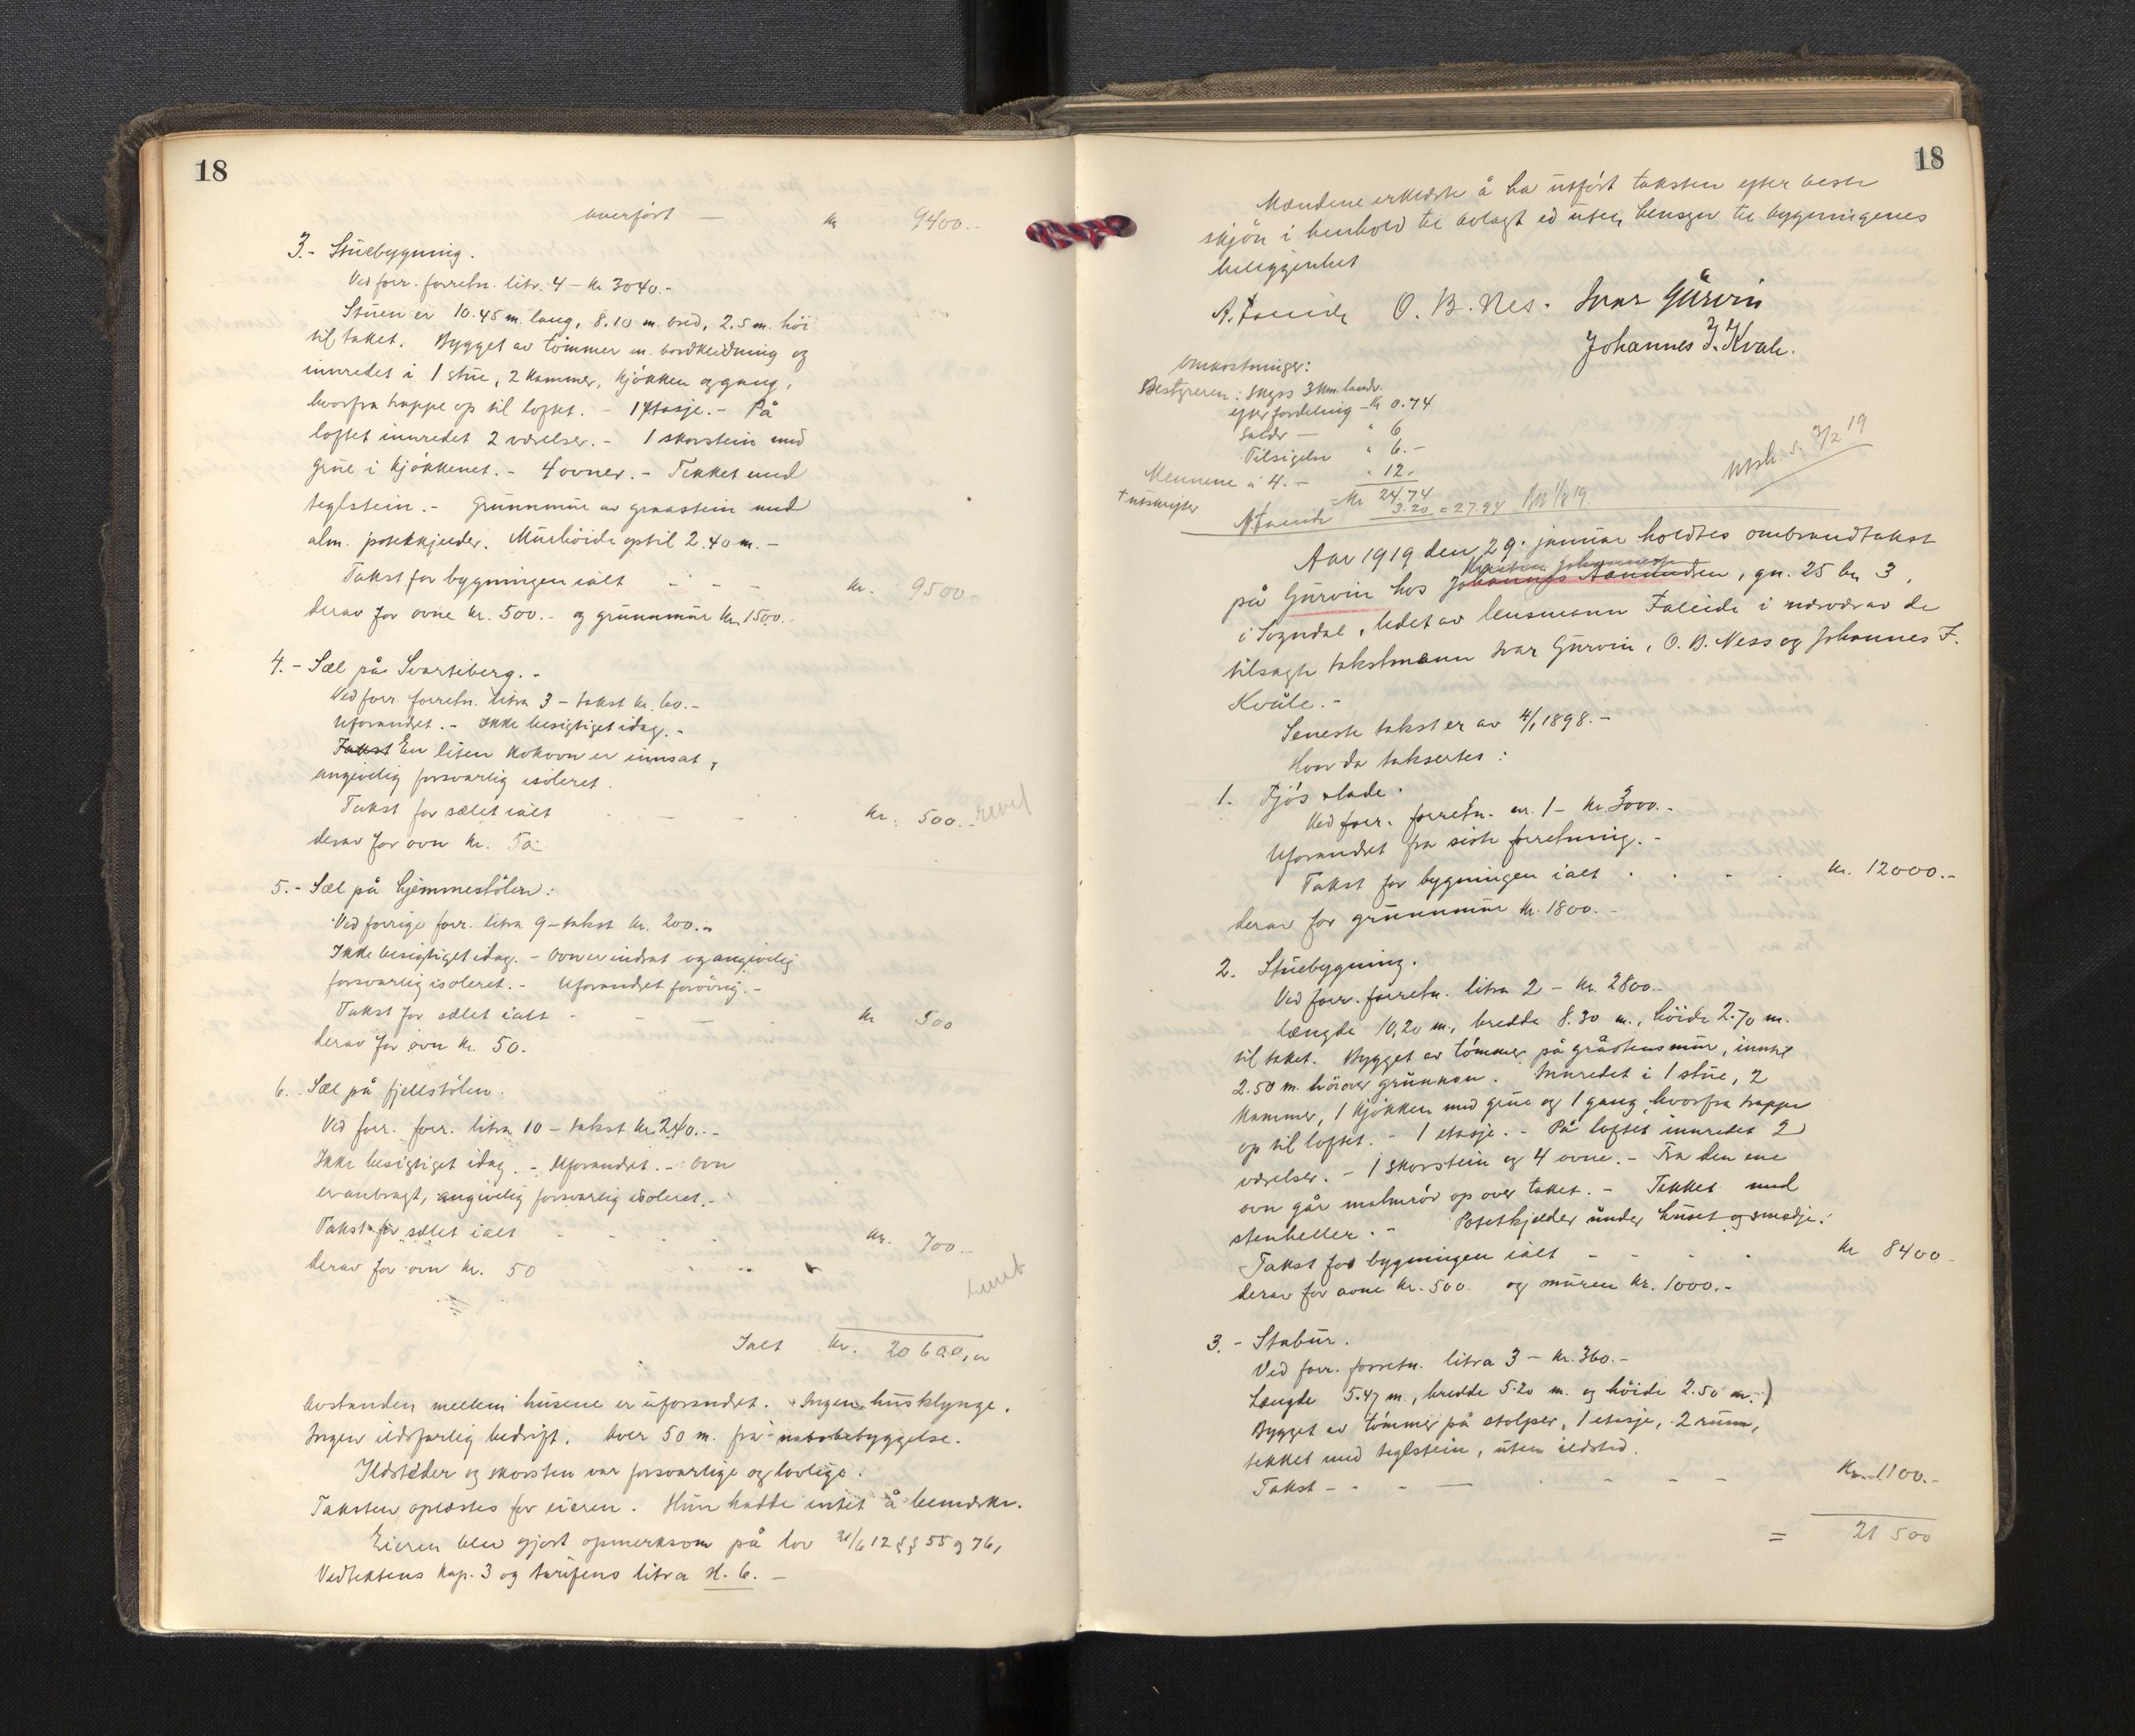 18
overført — kr 9400.-
3.- Stuebygning.
Ved forr. forretn. litr. 4 - kr 3040.-
Stuen er 10.45 m. lang, 8.10 m. bred, 2.5 m. høi
til taket. Bygget av tømmer m. bordkledning og
innredet i 1 stue, 2 kammer, kjøkken og gang,
hvorfra trappe op til loftet. - 1 etasje. - På
loftet innredet 2 værelser. - 1 skorstein med
grue i kjøkkenet. - 4 ovner. - Tekket med
teglstein. - Grunnmur av graastein med
alm. potetkjelder. Murhøide optil 2.40 m. -
Takst for bygningen ialt - - - kr. 9500.-
derav for ovne kr. 500.- og grunnmur kr. 1500.-
4. - Sæl på Svartiberg. -
Ved forr. forretn. litra 3 - takst kr. 60.-
Uforandret. - Ikke besigtiget idag. -
Takst En liten kokovn er innsat,
angivelig forsvarlig isoleret.
Takst for sælet ialt - - - kr. 500.-
derav for ovn kr. 50.
5. - Sæl på hjemmestølen:
Ved forrige forr. litra 9 - takst kr. 200.-
Ikke besigtiget idag. - Ovn er indsat og angivelig
forsvarlig isoleret. - Uforandret forøvrig. -
Takst for sælet ialt - - - kr 500
derav for ovn kr. 50.
6. Sæl på fjellstølen.
Ved forr. forr. litra 10 - takst kr 240.-
Ikke besigtiget idag. - Uforandret. - Ovn
er anbragt, angivelig forsvarlig isoleret. -
Takst for sælet ialt - - - kr. 700.-
derav for ovn kr. 50
Ialt kr. 20600,00
Avstanden mellem husene er uforandret. Ingen husklynge.
Ingen ildsfarlig bedrift. Over 50 m. fra nabobebyggelse.
Ildsteder og skorsten var forsvarlige og lovlige.
Taksten oplæstes for eieren. Hun hadde intet å bemerke.
Eieren blev gjort opmerksom på lov 21/6 12 §§ 55 og 76,
Vedtektens kap. 3 og tarifens litra H. 6. -
18
Mændene erklærte å ha utført taksten efter beste
skjøn i henhold til avlagt ed uten hensyn til bygningenes
beliggenhet
A. Faleide O. B. Nes. Ivar Gurvin
Johannes J. Kvale.
Omkostninger:
Bestyreren: Skyss 3 km. landv.
efter fordeling - kr 0.74
Salær — " 6
Tilsigelse " 6.-
Mennene à 4. - " 12.
= kr 24.74
+ utskrifter 3.20 = 27.94
A. Faleide
Utsk. s. 3/2 19
Aar 1919 den 29. januar holdtes ombrandtakst
Kristen Johannesen
på Gurvin hos Johannes Aamundsen, gn. 25 bn 3,
i Sogndal, ledet av lensmann Faleide i nærvær av de
tilsagte takstmenn Ivar Gurvin, O. B. Ness og Johannes J.
Kvåle. -
Seneste takst er av 4/1 1898. -
Hvor da taksertes:
1. Fjøs o lade.
Ved forr. forretn. nr. 1 - kr. 3000.-
Uforandret fra siste forretning. -
Takst for bygningen ialt - - - kr. 12000.-
derav for grunnmur kr. 1800.-
2. Stuebygning.
Ved forr. forretn. litra 2 - kr. 2800.-
Længde 10,20 m., bredde 8.30 m., høide 2.70 m.
til taket. Bygget av tømmer på gråstensmur, inntil
2.50 m. høi over grunnen. Innredet i 1 stue, 2
kammer, 1 kjøkken med grue og 1 gang hvorfra trappe
op til loftet. - 1 etasje. - På loftet innredet 2
værelser. - 1 skorstein og 4 ovne. - Fra den ene
ovn går malmrør op over taket. - Tekket med
stenheller. - Potetkjelder under huset og smedje.
Takst for bygningen ialt - - - kr 8400.-
derav for ovne kr. 500. og muren kr. 1000.-
3. - Stabur.
Ved forr. forretn. litra 3 - kr. 360.-
Længde 5.47 m., bredde 5.20 m. og høide 2.50 m.
Bygget av tømmer på stolper, 1 etasje, 2 rum,
tekket med teglstein, uten ildsted.
Takst - - - kr. 1100.-
= 21 500